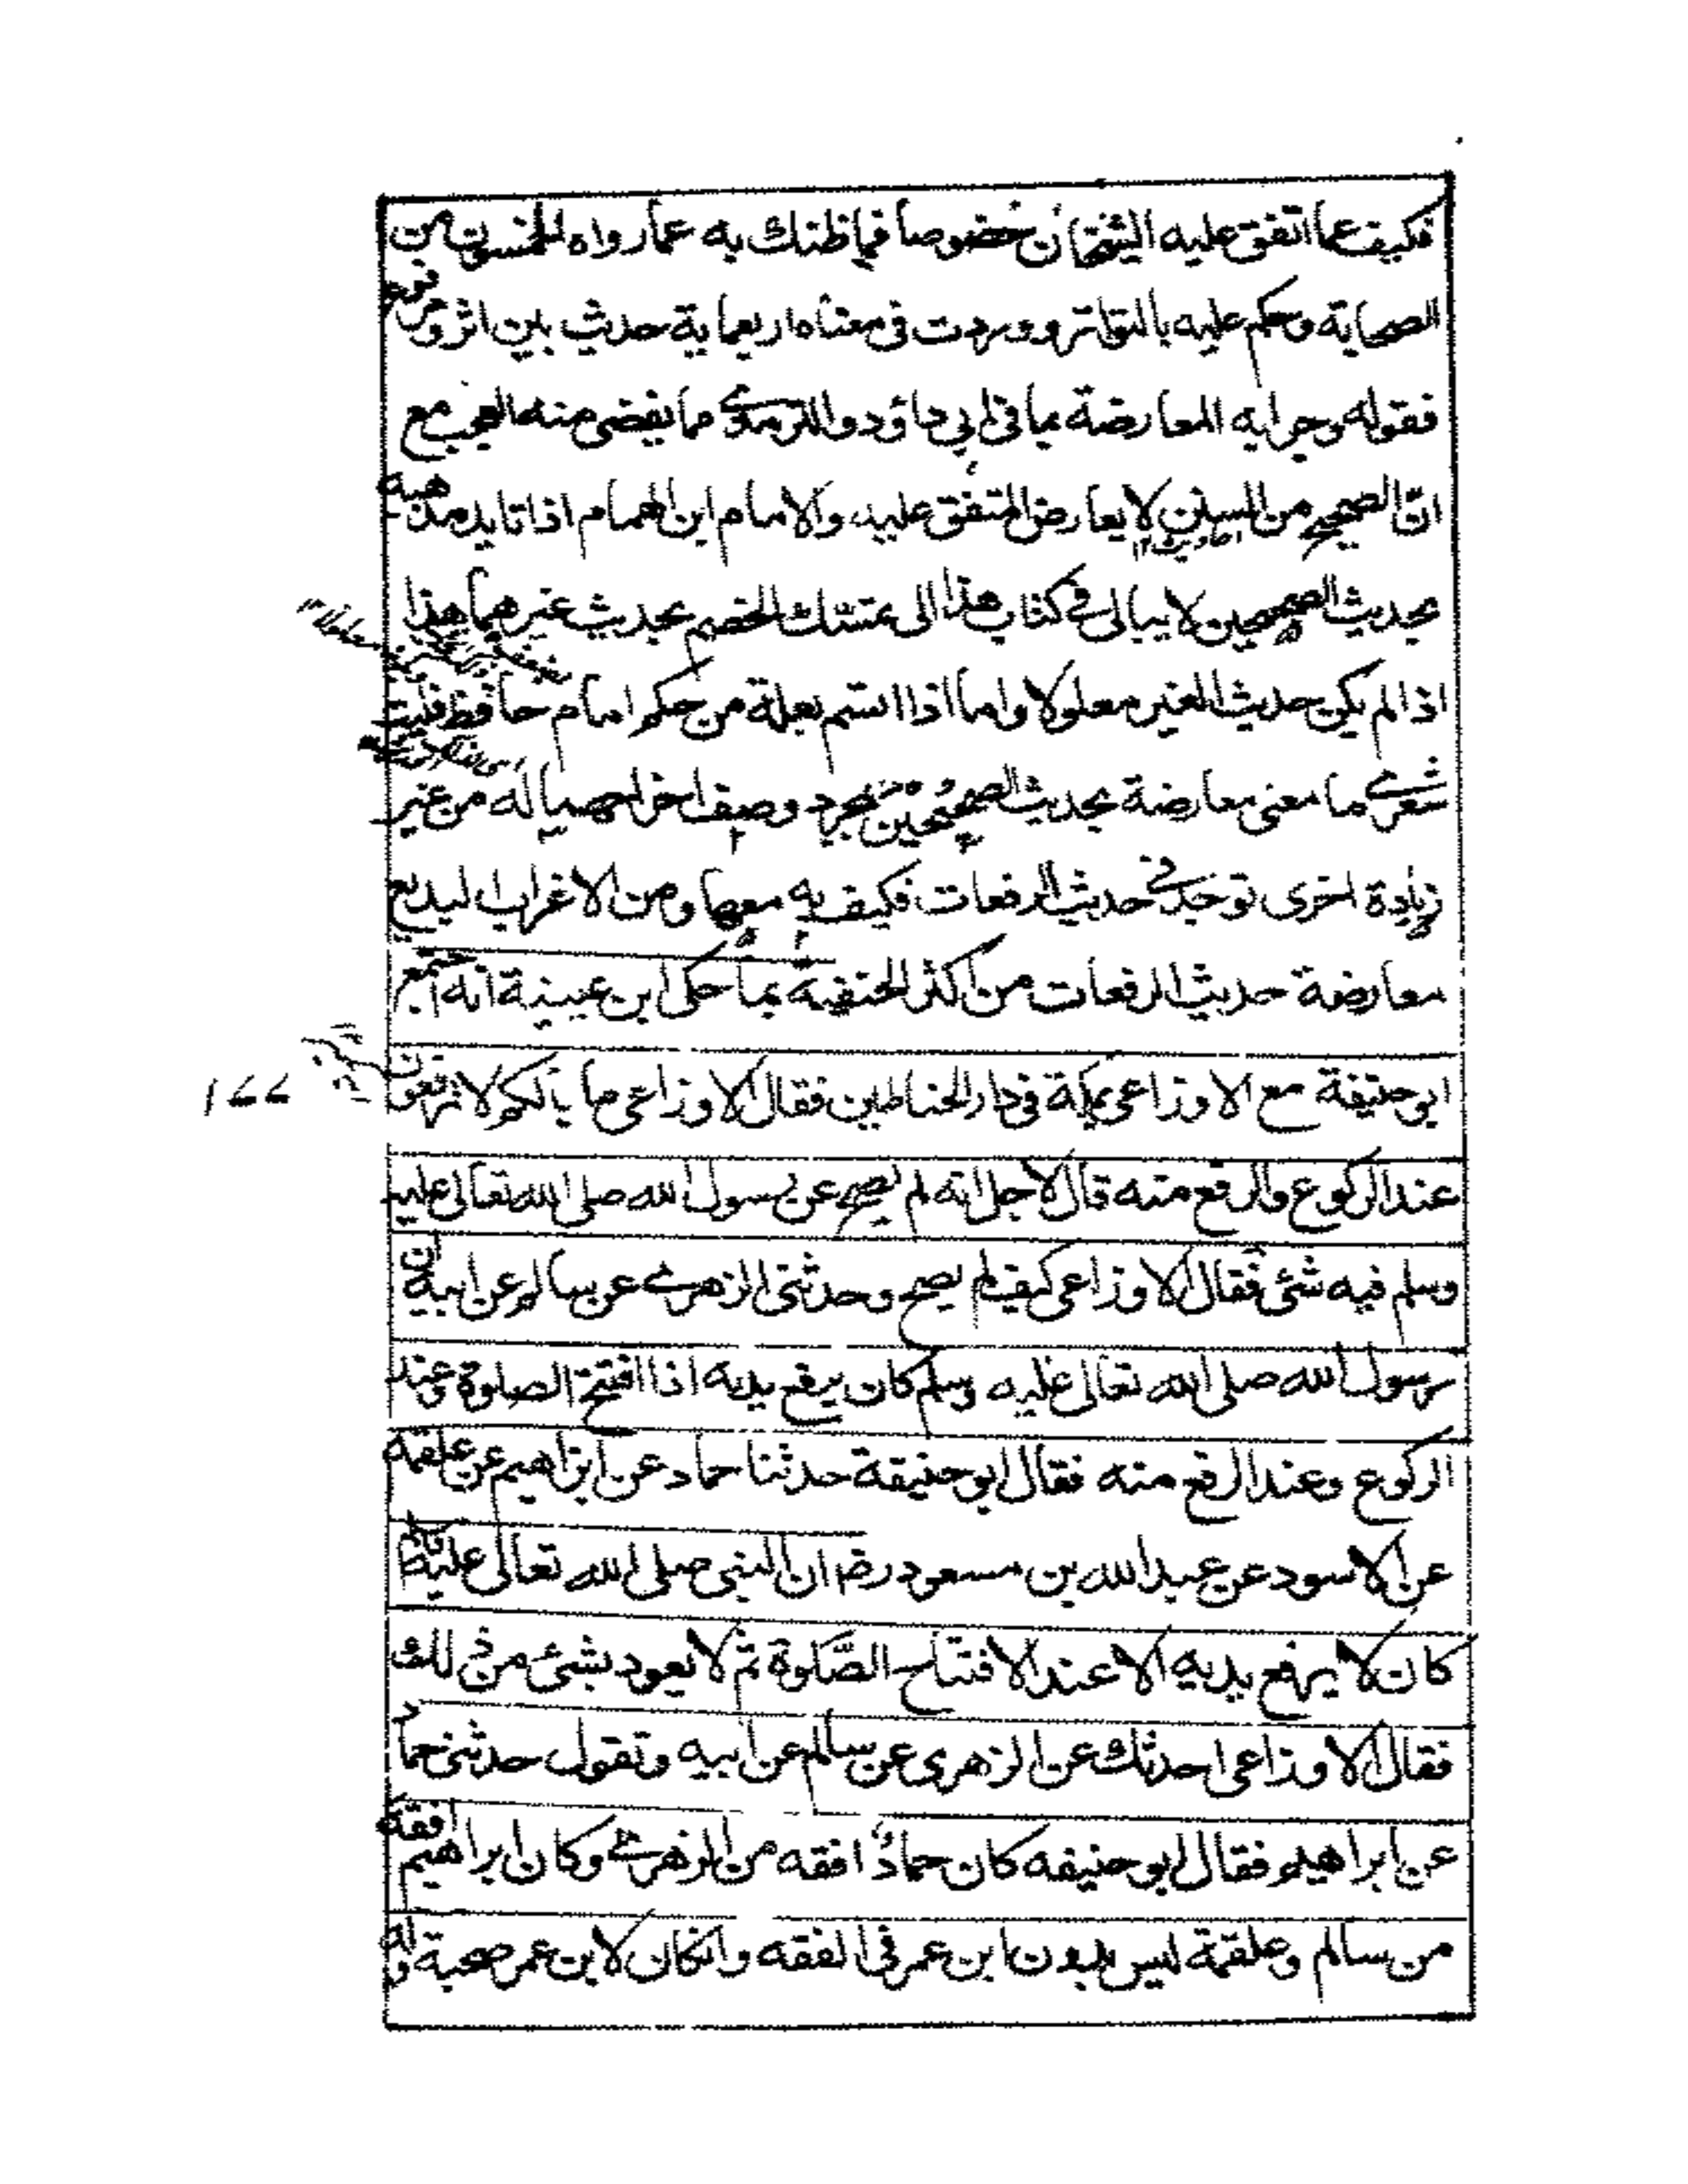 فكيف عما اتفق عليه الشيخان خصوصا فما ظنك به عما رواه الخمسون من
الصحابة وحكم عليه بالتواتر ووردت في معناه اربعماية حديث بين اثر ومرفوع
فقوله وجوابه المعارضة بما في ابي داؤد والترمذي مما يقضى منه العجب مع
انّ الصحيح من السنن لا يعارض المتفق عليه، والامام ابن الهمام اذا تايد مذهبه
بحديث الصحيحين لا يبالى في كتاب هذا الى تمسّك الخصم بحديث غيرهما هذا
اذا لم يكن حديث الغير معلولا واما اذا اتسم بعلة من حكم امام حافظ فليت
شعري ما معنى معارضة بحديث الصحيحين بمجرد وصف اخر له من غير
زيادة اخرى توجد في حديث الرفعات فكيف به معها ومن الاغراب البديع
معارضة حديث الرفعات من اكثر الحنفية بما حكى ابن عيينة انه اجتمع
ابو حنيفة مع الاوزاعى بمكة في دار الحناطين فقال الاوزاعى ما بالكم لا ترفعون
١٦٦
عند الركوع والرفع منه قال لاجل انه لم يصح عن رسول الله صلى الله تعالى عليه
وسلم فيه شئ فقال الاوزاعى كيف لم يصح وحدثنى الزهرى عن سالم عن ابيه ان
رسول الله صلى الله تعالى عليه وسلم كان يرفع يديه اذا افتتح الصلوة وعند
الركوع وعند الرفع منه فقال ابو حنيفة حدثنا حماد عن ابراهيم عن علقمه
عن الاسود عن عبد الله بن مسعود رض ان النبى صلى الله تعالى عليه وسلم
كان لا يرفع يديه الا عند الافتتاح الصَّلوة ثم لا يعود بشئ من ذلك
فقال الاوزاعى احدثك عن الزهرى عن سالم عن ابيه وتقول حدثنى حماد
عن ابراهيم فقال ابو حنيفه كان حمادُ افقه من الزهرى وكان ابراهيم افقه
من سالم وعلقمة ليس بدون ابن عمر فى الفقه وانكان لابن عمر صحبة وله